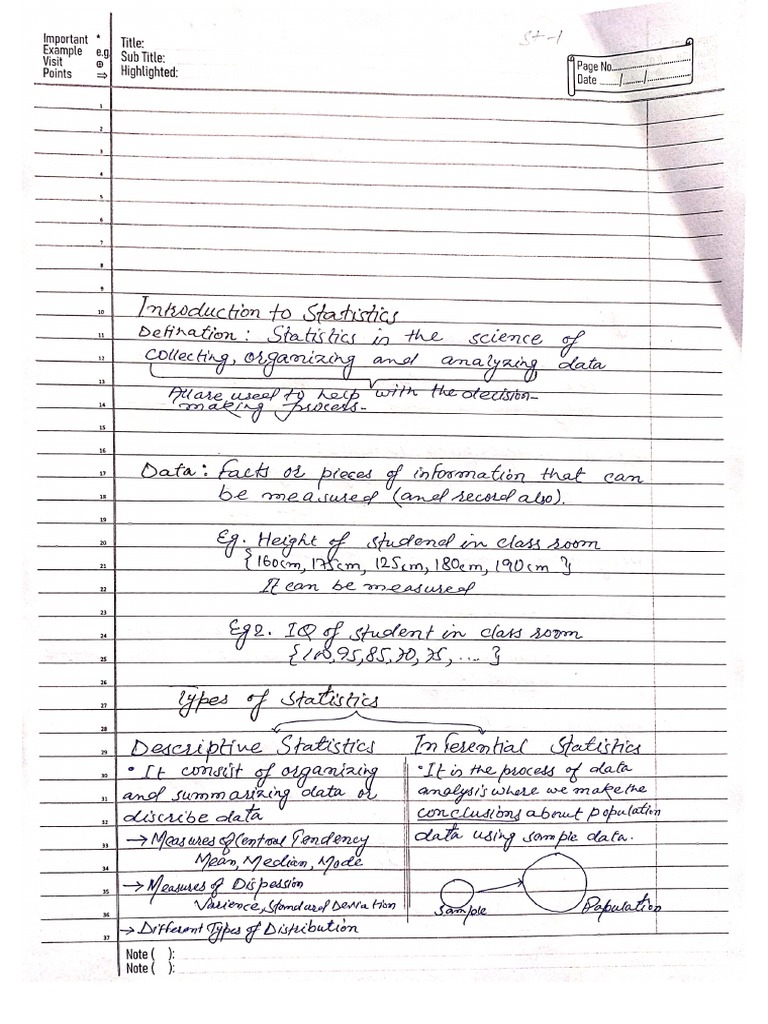 Important *
Example e.g.
Visit
Points ⇒
Title:
Sub Title:
Highlighted:
St-1
Page No.
Date ....../....../......
1
2
3
4
5
6
7
8
9
10 Introduction to Statistics
11 Defination: Statistics in the science of
12 collecting, organizing and analyzing data
13 All are used to help with the decision-
14 making process-
15
16
17 Data: Facts or pieces of information that can
18 be measured (and record also).
19
20 Eg. Height of studend in class room
21 {160cm, 175cm, 125cm, 180cm, 190cm}
22 It can be measured
23
24 Eg2. IQ of student in class room
25 {100,95,85,70,75,...}
26
27 Types of Statistics
28
29 Descriptive Statistics Inferential Statistics
30 • It consist of organizing • It is the process of data
31 and summarizing data or analysis where we make the
32 discribe data conclusions about population
33 → Measures of Central Tendency data using sample data.
34 Mean, Median, Mode
35 → Measures of Dispession
36 Varience, Standard Deviation Sample Population
37 → Different Types of Distribution
Note ( ):
Note ( ):